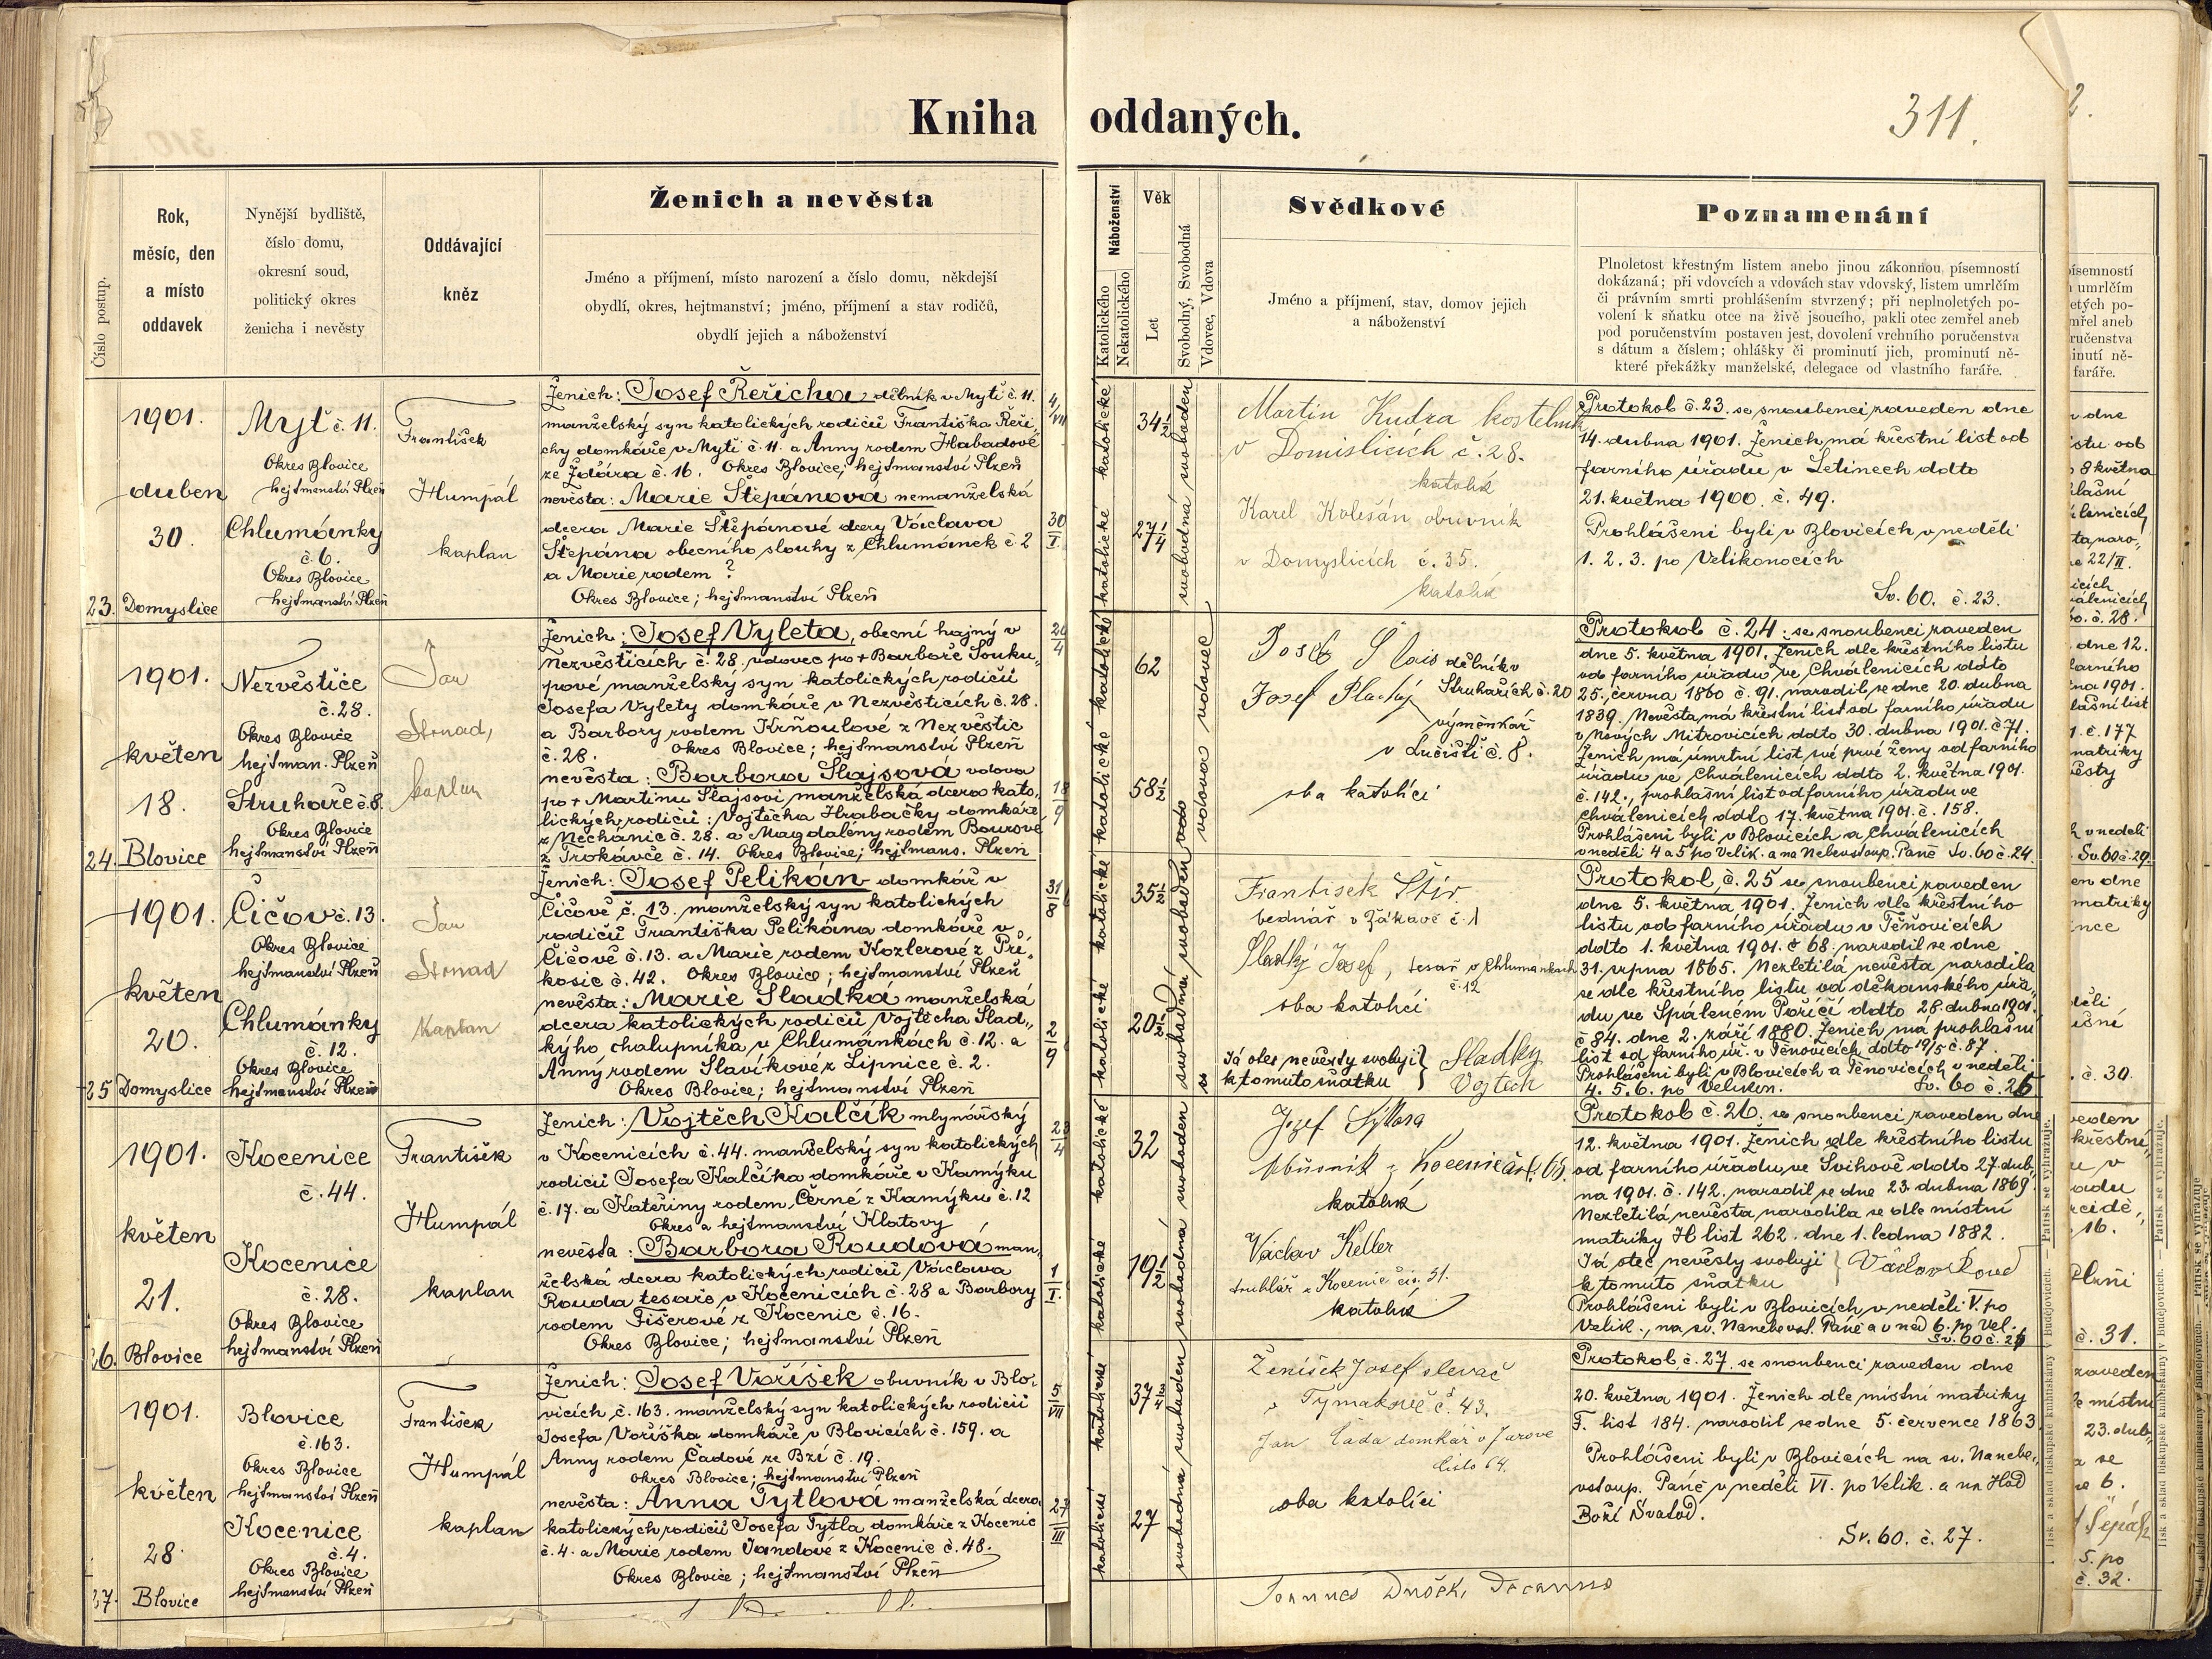 Kniha oddaných.
311.
Číslo postup.
Rok,
měsíc, den
a místo
oddavek
Nynější bydliště,
číslo domu,
okresní soud,
politický okres
ženicha i nevěsty
Oddávající
kněz
Ženich a nevěsta
Jméno a příjmení, místo narození a číslo domu, někdejší
obydlí, okres, hejtmanství; jméno, příjmení a stav rodičů,
obydlí jejich a náboženství
Náboženství
Katolického
Nekatolického
Věk
Let
Svobodný, Svobodná
Vdovec, Vdova
Svědkové
Jméno a příjmení, stav, domov jejich
a náboženství
Poznamenání
Plnoletost křestným listem anebo jinou zákonnou písemností
dokázaná; při vdovcích a vdovách stav vdovský, listem umrlčím
či právním smrti prohlášením stvrzený; při neplnoletých po-
volení k sňatku otce na živě jsoucího, pakli otec zemřel aneb
pod poručenstvím postaven jest, dovolení vrchního poručenstva
s dátum a číslem; ohlášky či prominutí jich, prominutí ně-
které překážky manželské, delegace od vlastního faráře.
23.
1901.
duben
30.
Domyslice
Mýť č. 11.
Okres Blovice
hejtmanství Plzeň
Chlumánky
č. 6.
Okres Blovice
hejtmanství Plzeň
František
Humpál
kaplan
Ženich: Josef Řeřicha, dělník v Mýtě č. 11.
manželský syn katolických rodičů Františka Řeři-
chy domkáře v Mýti č. 11. a Anny rodem Habadové
ze Žďára č. 16. Okres Blovice; hejtmanství Plzeň
nevěsta: Marie Štěpánová nemanželská
dcera Marie Štěpánové dcery Václava
Štěpána obecního slouhy z Chlumánek č. 2
a Marie rodem ?
Okres Blovice; hejtmanství Plzeň
4/VII
30/I.
katolické
katolické
34 1/2
27 1/4
svoboden
svobodná
Martin Kudra kostelník
v Domislicích č. 28.
katolík
Karel Kolesán obuvník
v Domyslicích č. 35.
katolík
Protokol č. 23. se snoubenci zaveden dne
14. dubna 1901. Ženich má křestní list od
farního úřadu v Letinech ddto
21. května 1900. č. 49.
Prohlášeni byli v Blovicích v neděli
1. 2. 3. po Velikonocích
Sv. 60. č. 23.
24.
1901.
květen
18.
Blovice
Nezvěstice
č. 28.
Okres Blovice
hejtman. Plzeň
Struhaře č. 8.
Okres Blovice
hejtmanství Plzeň
Jan
Strnad,
kaplan
Ženich: Josef Vyleta, obecní hajný v
Nezvěsticích č. 28. vdovec po + Barboře Souku-
pové manželský syn katolických rodičů
Josefa Vylety domkáře v Nezvěsticích č. 28.
a Barbory rodem Krňoulové z Nezvěstic
č. 28. Okres Blovice; hejtmanství Plzeň
nevěsta: Barbora Šlajsová vdova
po + Martinu Šlajsovi manželská dcera kato-
lických rodičů: Vojtěcha Hrabačky domkáře
z Nechánic č. 28. a Magdalény rodem Bourové
z Trokavče č. 14. Okres Blovice; hejtmans. Plzeň
katolické
katolické
62
58 1/2
vdovec
vdova
Josef Šlais dělník v
Struhařích č. 20
Josef Plachý
výměnkář
v Lučišti č. 8.
oba katolíci
Protokol č. 24. se snoubenci zaveden
dne 5. května 1901. Ženich dle křestního listu
od farního úřadu ve Chválenicích ddto
25. června 1860 č. 91. narodil se dne 20. dubna
1839. Nevěsta má křestní list od farního úřadu
v Nových Mitrovicích ddto 30. dubna 1901. č. 71.
Ženich má úmrtní list své prvé ženy od farního
úřadu ve Chválenicích ddto 2. května 1901.
č. 142., prohlašní list od farního úřadu ve
Chválenicích ddto 17. května 1901. č. 158.
Prohlášeni byli v Blovicích a Chválenicích
v neděli 4 a 5 po Velik. a na Nebevstoup. Páně Sv. 60 č. 24.
25
1901.
květen
20.
Domyslice
Čičov č. 13.
Okres Blovice
hejtmanství Plzeň
Chlumánky
č. 12.
Okres Blovice
hejtmanství Plzeň
Jan
Strnad
Kaplan
Ženich: Josef Pelikán domkář v
Čičově č. 13. manželský syn katolických
rodičů Františka Pelikána domkáře v
Čičově č. 13. a Marie rodem Kozlerové z Pří-
kosic č. 42. Okres Blovice; hejtmanství Plzeň
nevěsta: Marie Sladká manželská
dcera katolických rodičů Vojtěcha Slad-
kýho, chalupníka v Chlumánkách č. 12. a
Anny rodem Slavíkové z Lipnice č. 2.
Okres Blovice; hejtmanství Plzeň
31/8
2/9
katolické
katolické
35 1/2
20 1/2
svoboden
svobodná
František Štir
bednář v Žákavě č. 1
Sladký Josef, tesař v Chlumankach
č. 12
oba katolíci
Já otec nevěsty svoluji
k tomuto sňatku
Sladky
Vojtěch
Protokol, č. 25 se snoubenci zaveden
dne 5. května 1901. Ženich dle křestního
listu od farního úřadu v Těňovicích
ddto 1. května 1901. č 68. narodil se dne
31. srpna 1865. Nezletilá nevěsta narodila
se dle křestního listu od děkanského úřa-
du ve Spáleném Poříčí ddto 28. dubna 1901.
č 84. dne 2. září 1880. Ženich má prohlašní
list od farního úř. v Těnovicích ddto 19/5 č. 87.
Prohlášeni byli v Blovicích a Těnovicích v neděli
4. 5. 6. po Velikon. Sv. 60 č. 25
26.
1901.
květen
21.
Blovice
Kocenice
č. 44.
Kocenice
č. 28.
Okres Blovice
hejtmanství Plzeň
František
Humpál
kaplan
Ženich: Vojtěch Kalčík mlynářský
v Kocenicích č. 44. manželský syn katolických
rodičů Josefa Kalčíka domkáře v Kamýku
č. 17. a Kateřiny rodem Černé z Kamýku č. 12
Okres a hejtmanství Klatovy
nevěsta: Barbora Roudová man-
želská dcera katolických rodičů Václava
Rouda tesaře v Kocenicích č. 28 a Barbory
rodem Fišerové z Kocenic č. 16.
Okres Blovice; hejtmanství Plzeň
23/4
1/I.
katolické
katolické
32
19 1/2
svoboden
svobodná
Jozef Sýkora
obuvník z Kocenic čís. 65.
katolík
Václav Keller
truhlář z Kocenic čís. 31.
katolík
Protokol č. 26. se snoubenci zaveden dne
12. května 1901. Ženich dle křestního listu
od farního úřadu ve Švihově ddto 27. dub-
na 1901. č. 142. narodil se dne 23. dubna 1869.
Nezletilá nevěsta narodila se dle místní
matriky H list 262. dne 1. ledna 1882.
Já otec nevěsty svoluji
k tomuto sňatku
Václav Roud
Prohlášeni byli v Blovicích v neděli V. po
Velik., na sv. Nanebevst. Páně a v ned 6. po Vel.
Sv. 60 č. 26
27.
1901.
květen
28.
Blovice
Blovice
č. 163.
Okres Blovice
hejtmanství Plzeň
Kocenice
č. 4.
Okres Blovice
hejtmanství Plzeň
František
Humpál
kaplan
Ženich: Josef Voříšek obuvník v Blo-
vicích č. 163. manželský syn katolických rodičů
Josefa Voříška domkáře v Blovicích č. 159. a
Anny rodem Čadové ze Bzí č. 19.
Okres Blovice; hejtmanství Plzeň
nevěsta: Anna Tytlová manželská dcera
katolických rodičů Josefa Tytla domkáře z Kocenic
č. 4. a Marie rodem Jandové z Kocenic č. 48.
Okres Blovice; hejtmanství Plzeň
5/VII
27/III
katolické
katolické
37
27
svoboden
svobodná
Ženíšek Josef slevač
v Tymakově č. 43.
Jan Čada domkář v Žurove
číslo 64.
oba katolíci
Protokol, č. 27. se snoubenci zaveden dne
20. května 1901. Ženich dle místní matriky
F. list 184. narodil se dne 5. července 1863
Prohlášeni byli v Blovicích na sv. Nanebe-
vstoup. Páně v neděli VI. po Velik. a na Hod
Boží Svatod.
Sv. 60. č. 27.
Joannes Dušek, Decanus
Tisk a sklad biskupské knihtiskárny v Budějovicích. — Patisk se vyhrazuje.